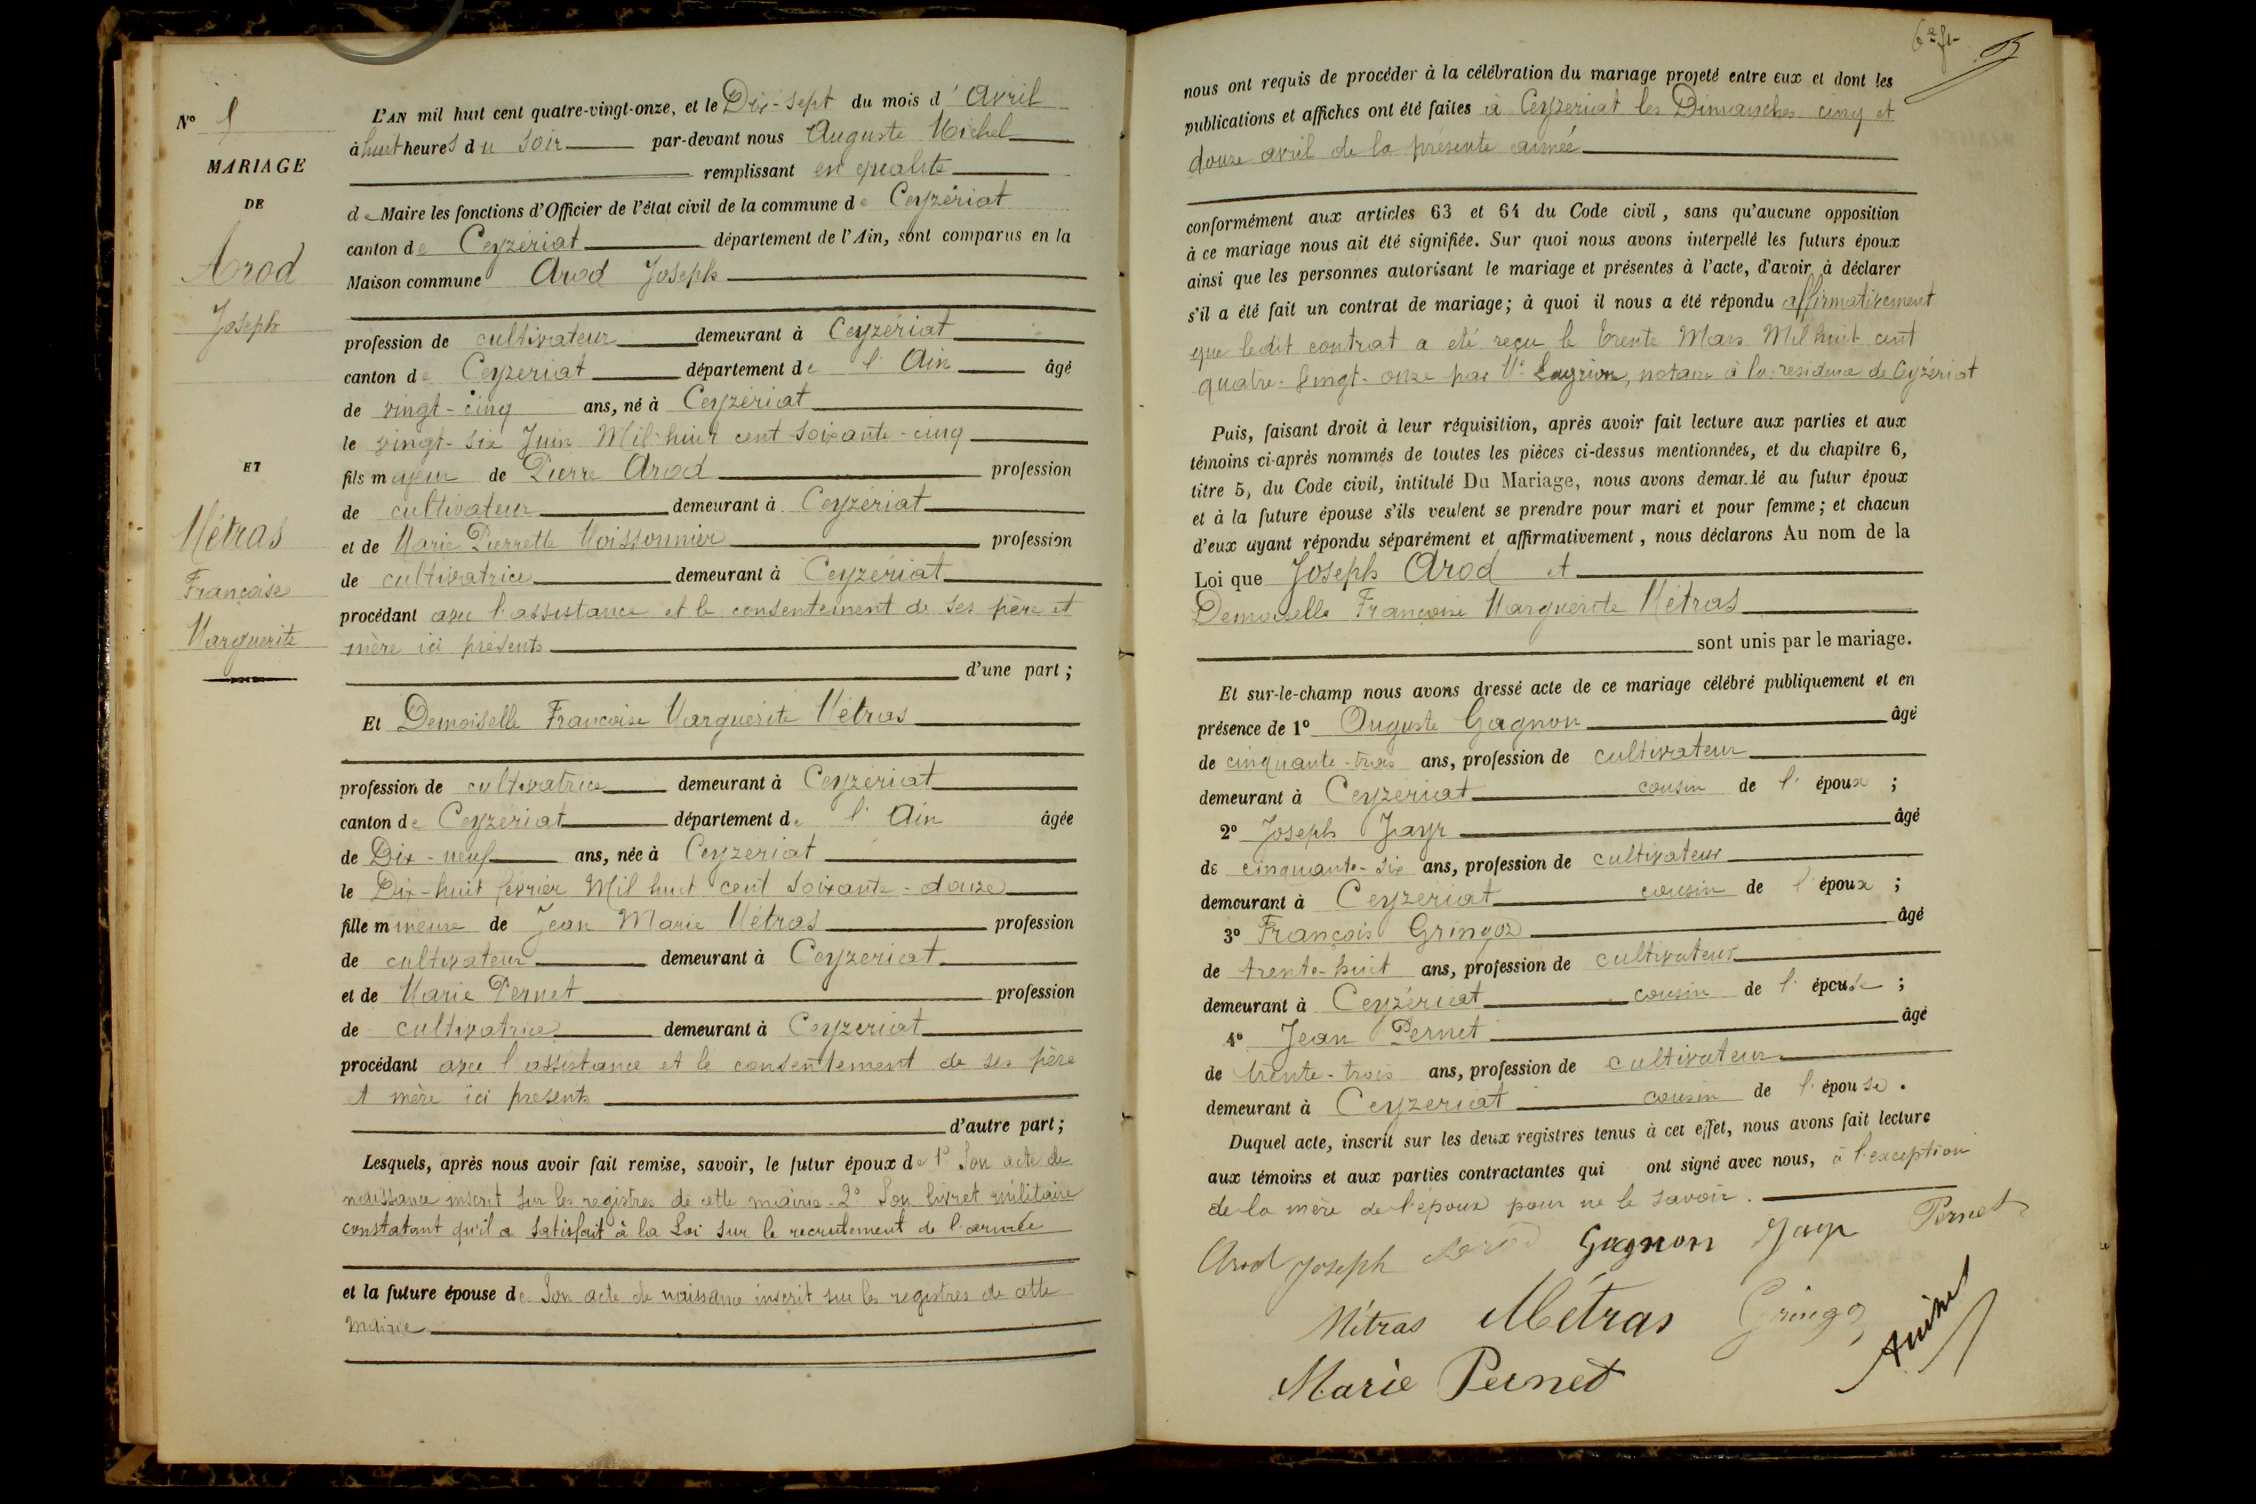 N°
MARIAGE
DE
Arod
Joseph
ET
Métras
Françoise
Marguerite
L'AN mil huit cent quatre-vingt-onze, et le Dix-sept du mois d' avril
à huit heures du soir par-devant nous Auguste Michel
remplissant en qualité
de Maire les fonctions d'Officier de l'état civil de la commune de Ceyzériat
canton de Ceyzériat département de l'Ain, sont comparus en la
Maison commune Arod Joseph
profession de cultivateur demeurant à Ceyzériat
canton de Ceyzériat département de l'Ain âgé
de vingt-cinq ans, né à Ceyzériat
le vingt-six Juin Mil huit cent soixante-cinq
fils majeur de Pierre Arod profession
de cultivateur demeurant à Ceyzériat
et de Marie Pierrette Moissonnier profession
de cultivatrice demeurant à Ceyzériat
procédant avec l'assistance et le consentement de ses père et
mère ici présents
d'une part ;
Et Demoiselle Françoise Marguerite Métras
profession de cultivatrice demeurant à Ceyzériat
canton de Ceyzériat département de l'Ain âgée
de Dix-neuf ans, née à Ceyzeriat
le Dix-huit février Mil huit cent soixante-douze
fille mineure de Jean Marie Métras profession
de cultivateur demeurant à Ceyzeriat
et de Marie Pernet profession
de cultivatrice demeurant à Ceyzeriat
procédant avec l'assistance et le consentement de ses père
et mère ici presents
d'autre part ;
Lesquels, après nous avoir fait remise, savoir, le futur époux de 1° Son acte de
naissance inscrit sur les registres de cette mairie - 2° Son livret militaire
constatant qu'il a satisfait à la Loi sur le recrutement de l'armée
et la future épouse de Son acte de naissance inscrit sur les registres de cette
mairie
nous ont requis de procéder à la célébration du mariage projeté entre eux et dont les
publications et affiches ont été faites à Ceyzeriat les Dimanches cinq et
douze avril de la présente année
conformément aux articles 63 et 64 du Code civil, sans qu'aucune opposition
à ce mariage nous ait été signifiée. Sur quoi nous avons interpellé les futurs époux
ainsi que les personnes autorisant le mariage et présentes à l'acte, d'avoir à déclarer
s'il a été fait un contrat de mariage ; à quoi il nous a été répondu affirmativement
que ledit contrat a été reçu le trente Mars Mil huit cent
quatre-vingt-onze par Me notaire à la résidence de Ceyzériat
Puis, faisant droit à leur réquisition, après avoir fait lecture aux parties et aux
témoins ci-après nommés de toutes les pièces ci-dessus mentionnées, et du chapitre 6,
titre 5, du Code civil, intitulé Du Mariage, nous avons demandé au futur époux
et à la future épouse s'ils veulent se prendre pour mari et pour femme ; et chacun
d'eux ayant répondu séparément et affirmativement, nous déclarons Au nom de la
Loi que Joseph Arod et
Demoiselle Françoise Marguerite Métras
sont unis par le mariage.
Et sur-le-champ nous avons dressé acte de ce mariage célébré publiquement et en
présence de 1° Auguste Gagnon âgé
de cinquante-trois ans, profession de cultivateur
demeurant à Ceyzeriat cousin de l'époux ;
2° Joseph Jayr âgé
de cinquante-six ans, profession de cultivateur
demeurant à Ceyzeriat cousin de l'époux ;
3° François Gringoz âgé
de trente-huit ans, profession de cultivateur
demeurant à Ceyzériat cousin de l'épouse ;
4° Jean Pernet âgé
de trente-trois ans, profession de cultivateur
demeurant à Ceyzeriat cousin de l'épouse.
Duquel acte, inscrit sur les deux registres tenus à cet effet, nous avons fait lecture
aux témoins et aux parties contractantes qui ont signé avec nous, à l'exception
de la mère de l'époux pour ne le savoir.
Arod Joseph Arod Gagnon Jayr Pernet
Métras Métras Gringoz
Marie Pernet